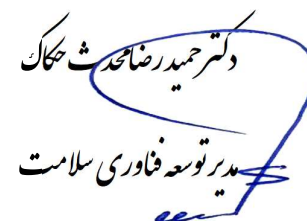 دکتر حمیدرضا محدث حکاک
مدیر توسعه فناوری سلامت